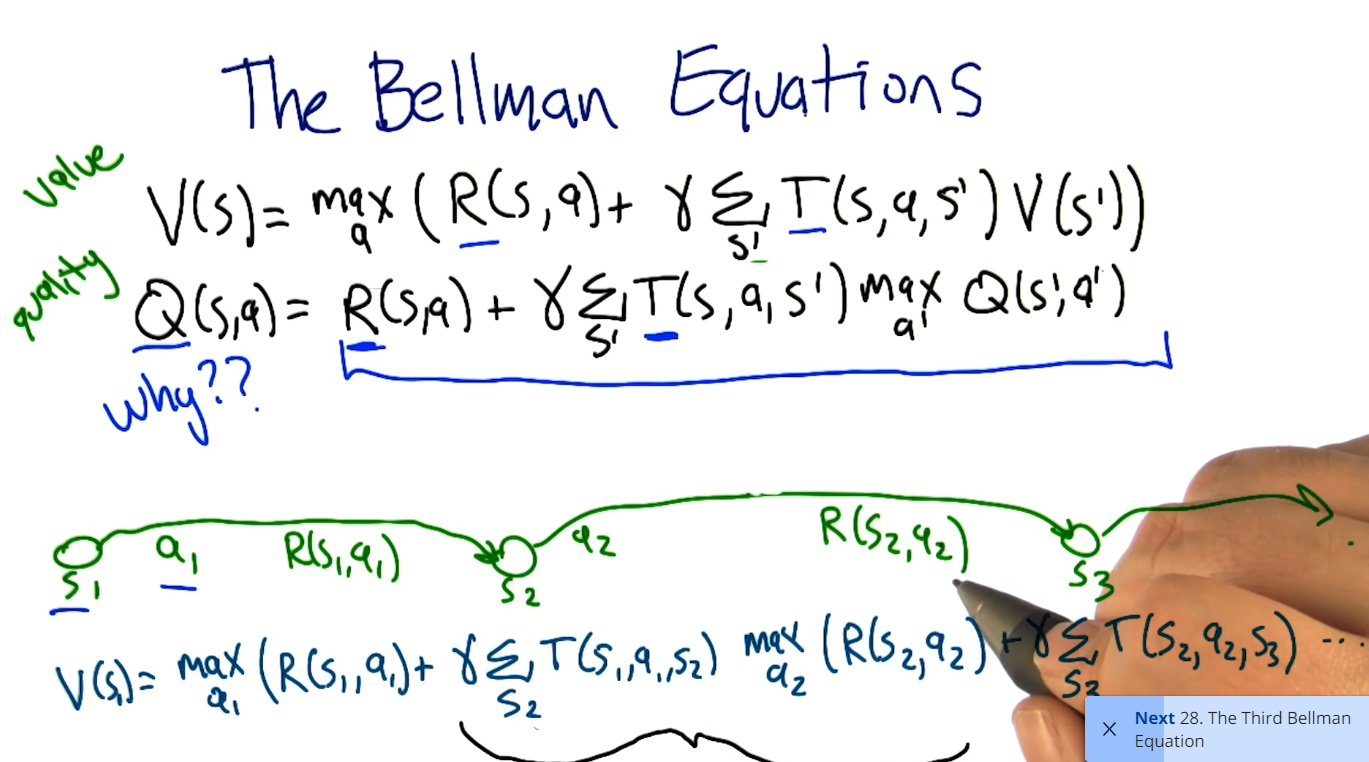 The Bellman Equations
value
V(s)= max a (R(s,a)+ γ Σ s' T(s,a,s')V(s'))
quality
Q(s,a)= R(s,a)+ γ Σ s' T(s,a,s') max a' Q(s',a')
why??
a1 R(s1,a1) a2 R(s2,a2)
s1 s2 s3
V(s1)= max a1 (R(s1,a1)+ γ Σ s2 T(s1,a1,s2) max a2 (R(s2,a2)+γ Σ s3 T(s2,a2,s3) ...
Next 28. The Third Bellman
Equation